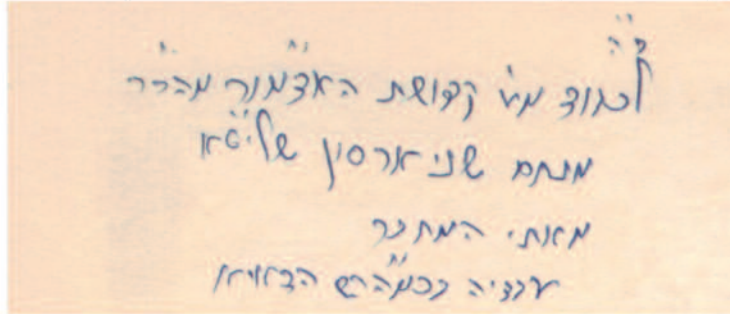 ב״ה
לכבוד מע׳ קדושת האדמו״ר מהר״ר
מנחם שניארסון שליט״א
מאתי המחבר
עבדיה בכמהר״ש